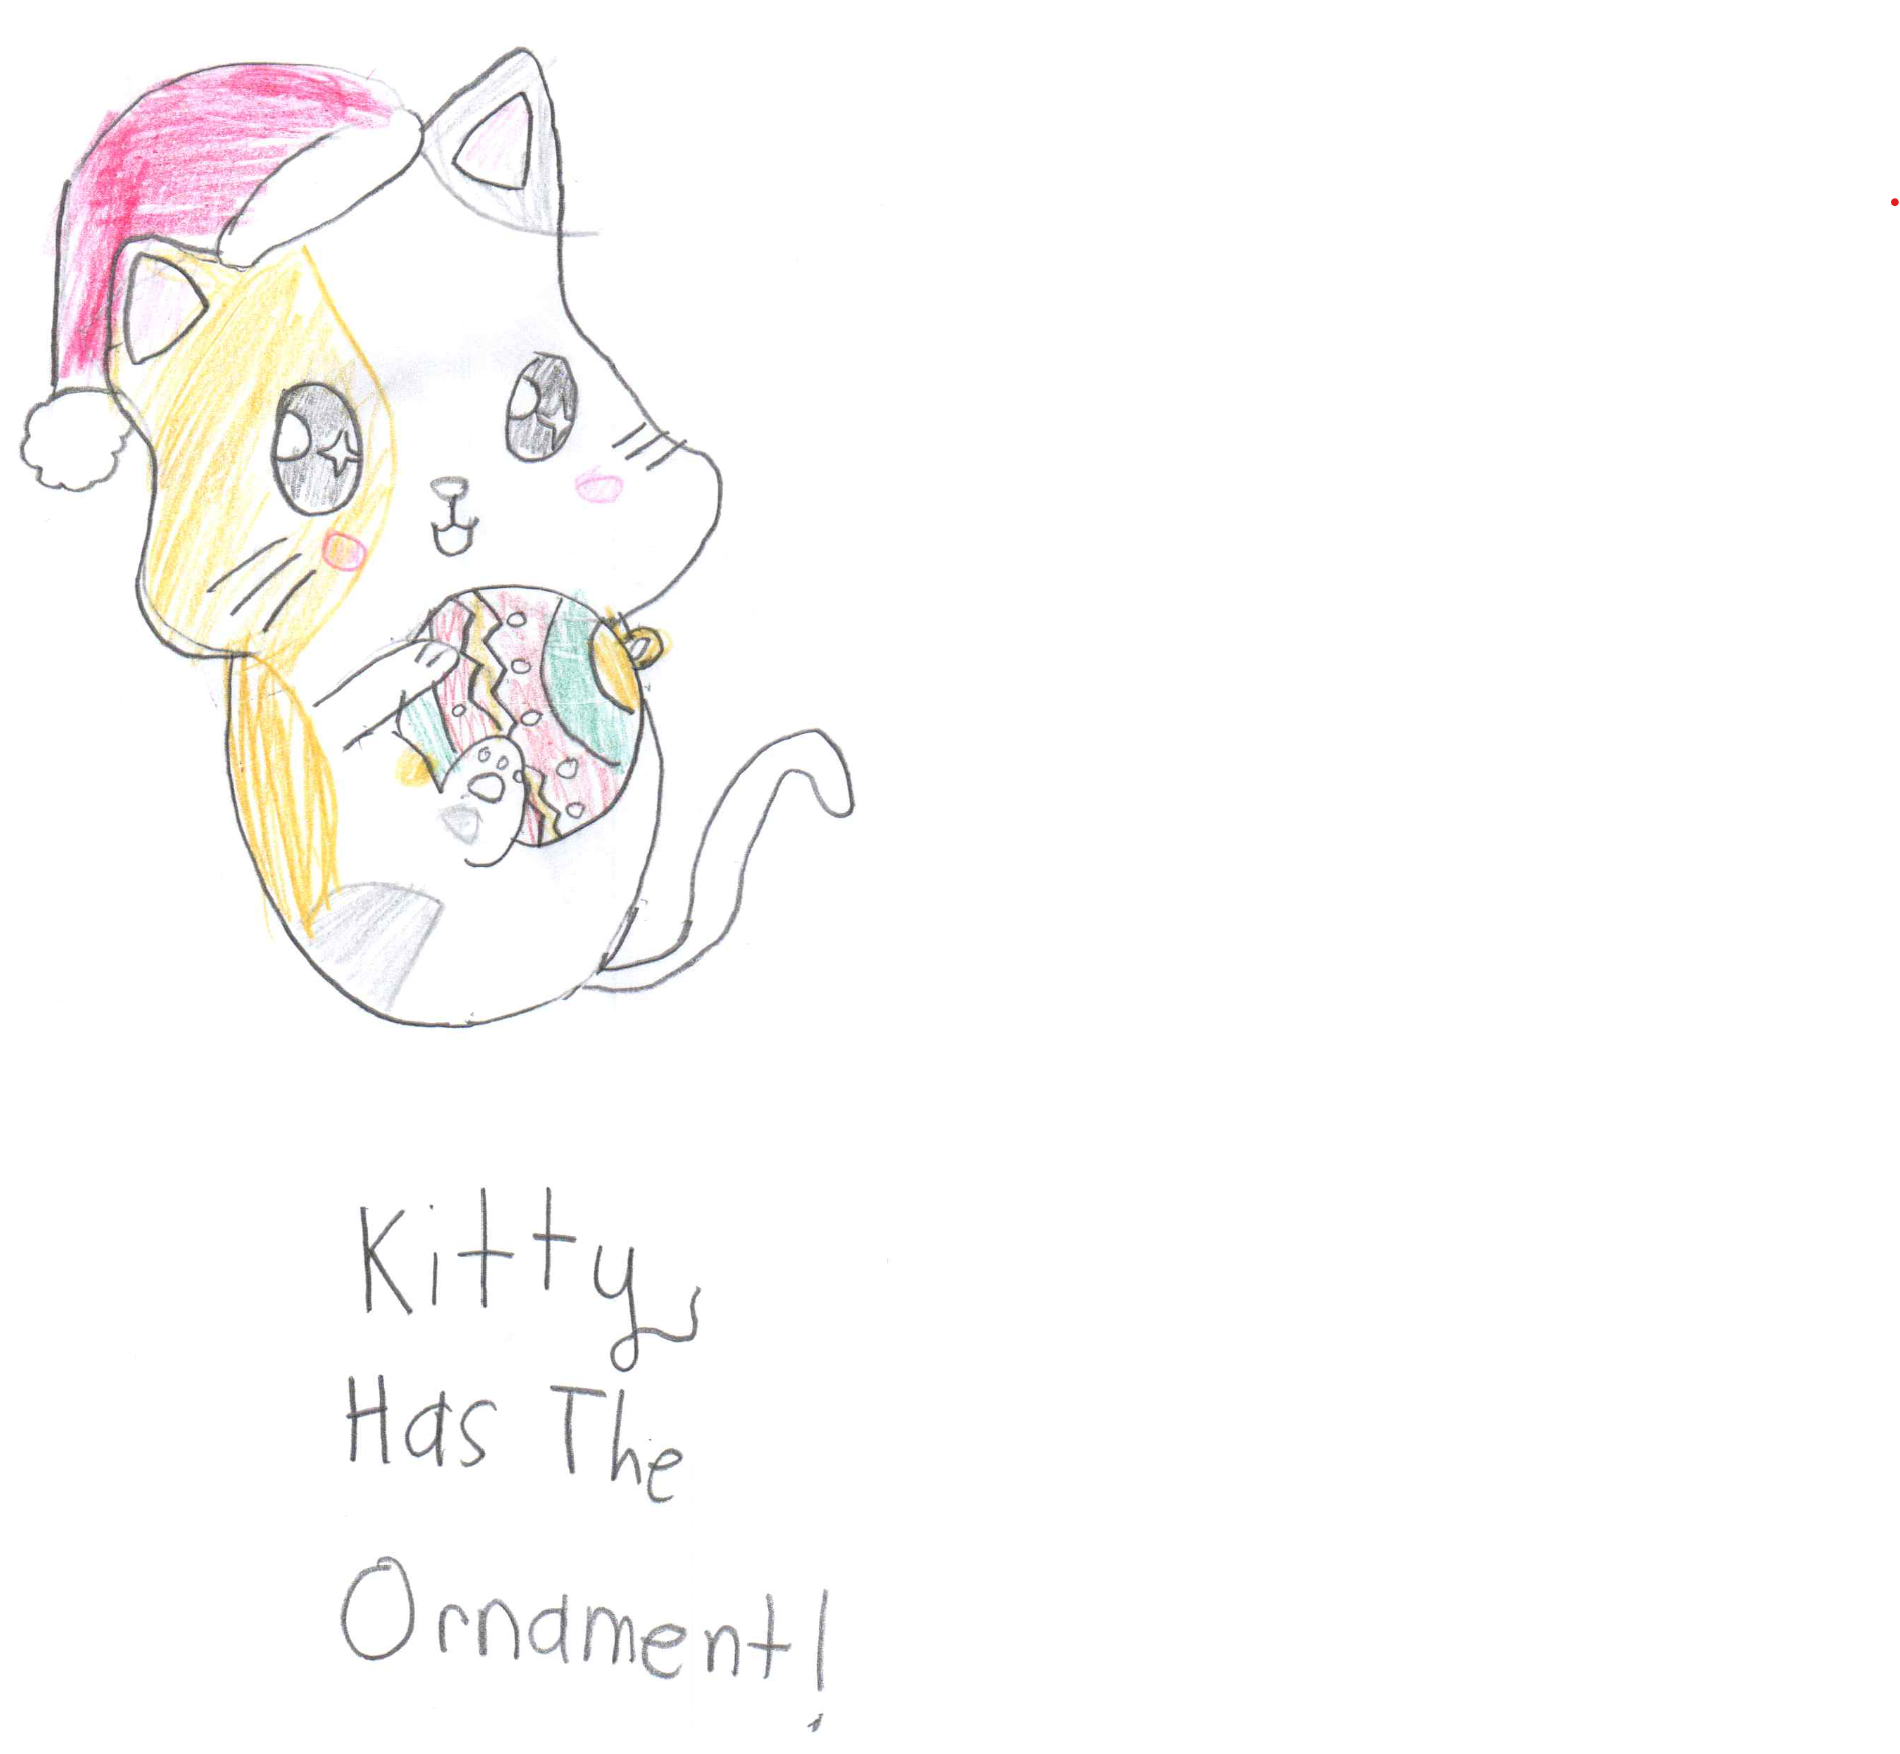 Kitty
Has The
Ornament!